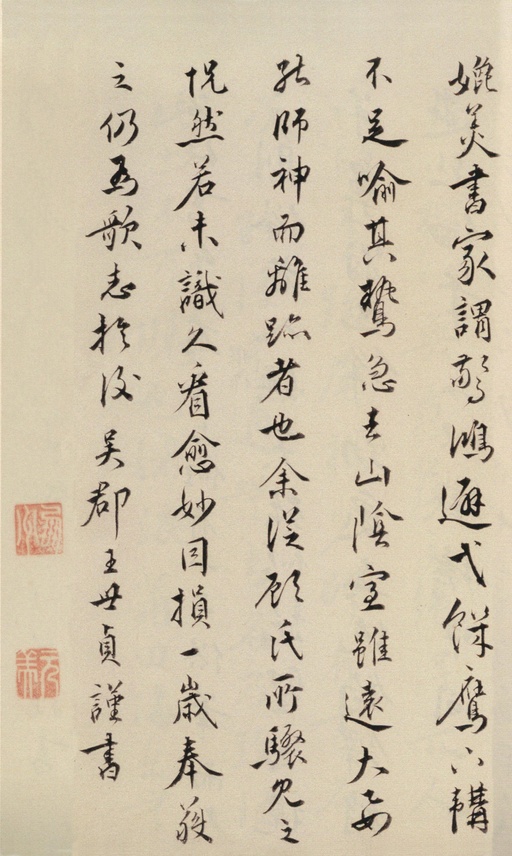 媲美書家謂驚鴻避弋鷹下韝
不足喻其鷙急去山陰室雖遠大要
能師神而離跡者也余從顧氏所驟見之
怳然若未識久看愈妙因損一歲奉獲
之仍為歌志於後吳郡王世貞謹書
元美